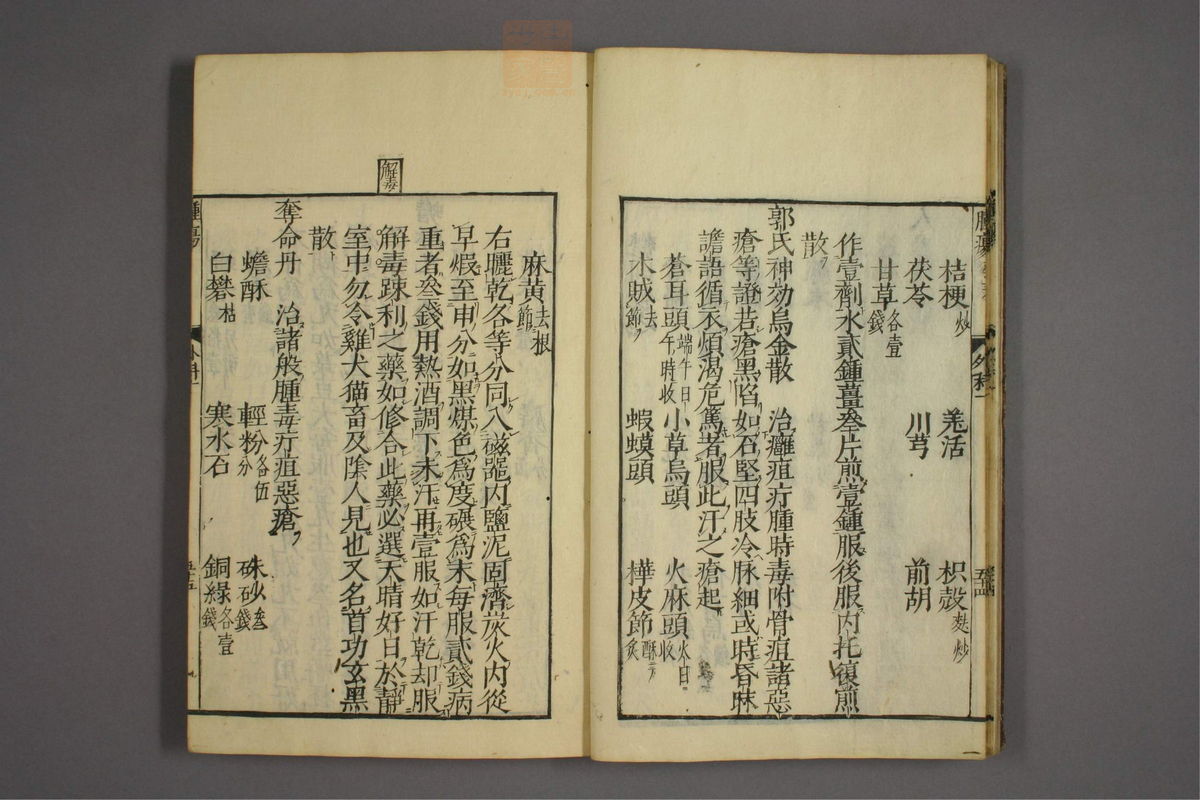 桔梗炒 羌活 枳殼麸炒
茯苓 川芎 前胡
甘草各壹錢
作壹劑水貳鍾薑叄片煎壹鍾服後服内托復煎
散
郭氏神効烏金散 治癰疽疔腫時毒附骨疽諸惡
瘡等證若瘡黑陷如石堅四肢冷脉細或時昏昧
譫語循衣煩渴危篤者服此汗之瘡起
蒼耳頭端午日午時收 小草烏頭 火麻頭火日收
木賊去節 蝦蟆頭 樺皮節酥炙
外科一
麻黄去根節
右曬乾各等分同入磁器内鹽泥固濟炭火内從
早煆至申分如黑煤色爲度碾爲末每服貳錢病
重者叄錢用熱酒調下未汗再壹服如汗乾却服
解毒疎利之藥如修合此藥必選天晴好日於靜
室中勿令雞犬猫畜及陰人見也又名首功玄黑
散
解毒
奪命丹 治諸般腫毒疔疽惡瘡
蟾酥 輕粉各伍分 硃砂叄錢
白礬枯 寒水石 銅緑各壹錢